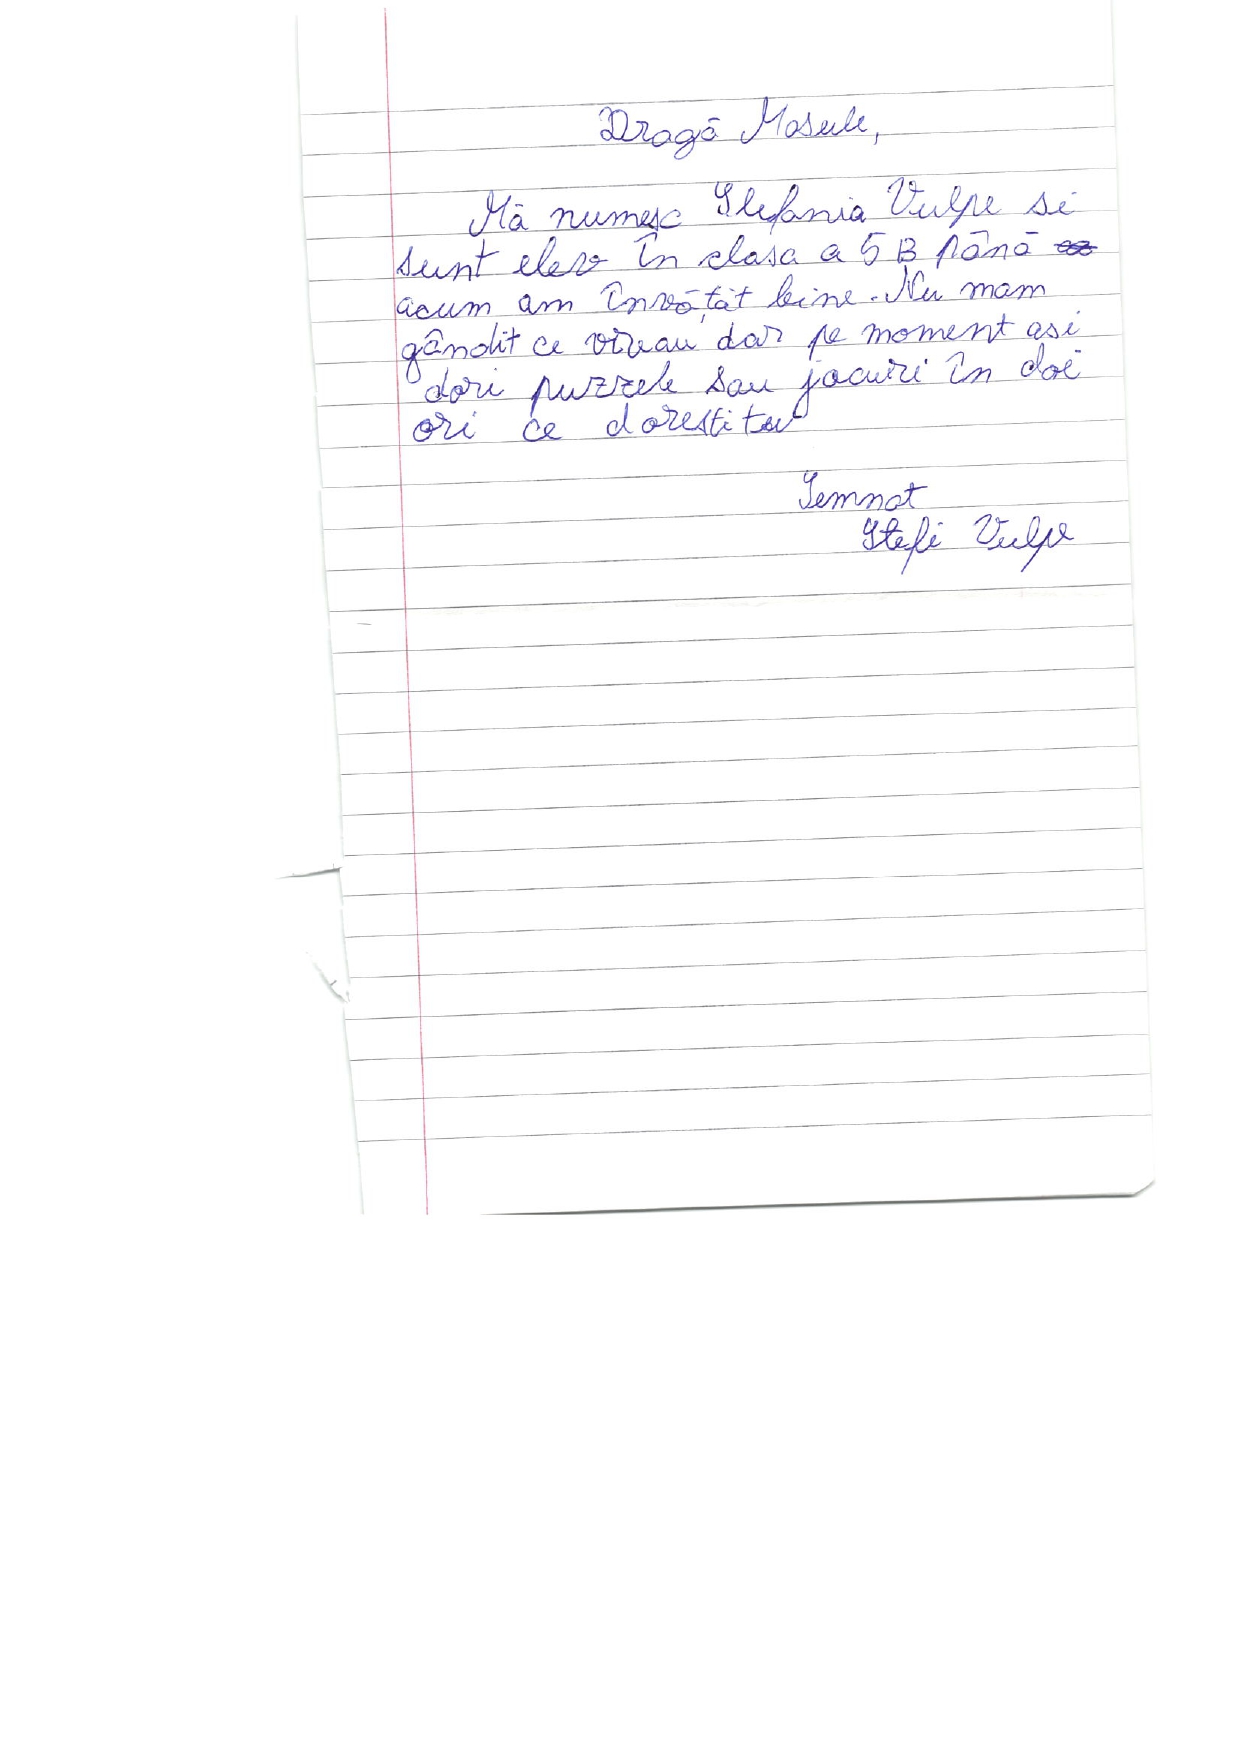 Dragă Mosule,
Mă numesc Stefania Vulpe si
sunt elev în clasa a 5 B până
acum am învățat bine. Nu mam
gândit ce vreau dar pe moment asi
dori puzzele sau jocuri în doi
ori ce dorești tu
Semnat
Stefi Vulpe